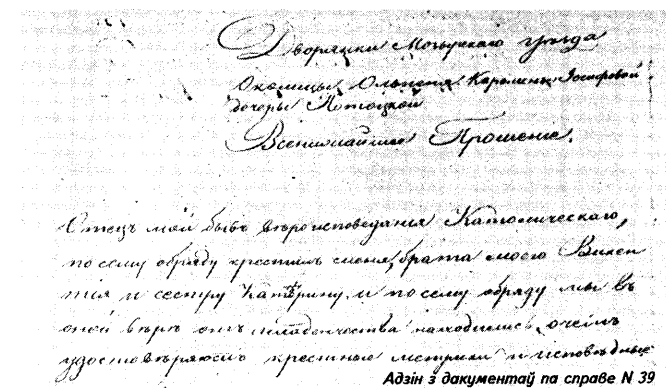 Дворянки Мозырскаго уѣзда
Околицы Ольпеня Каролины Іосифовой
дочери Потоцкой
Всенижайшее Прошеніе.
Отецъ мой бывъ вѣроисповеданія Католическаго,
по сему обряду крестилъ меня, брата моего Викен
тія и сестру Катерину, и по сему обряду мы въ
оной вѣрѣ отъ младенчества находились, о чемъ
удостовѣряютъ крестные метрики и исповѣдные
Адзін з дакументаў па справе N 39